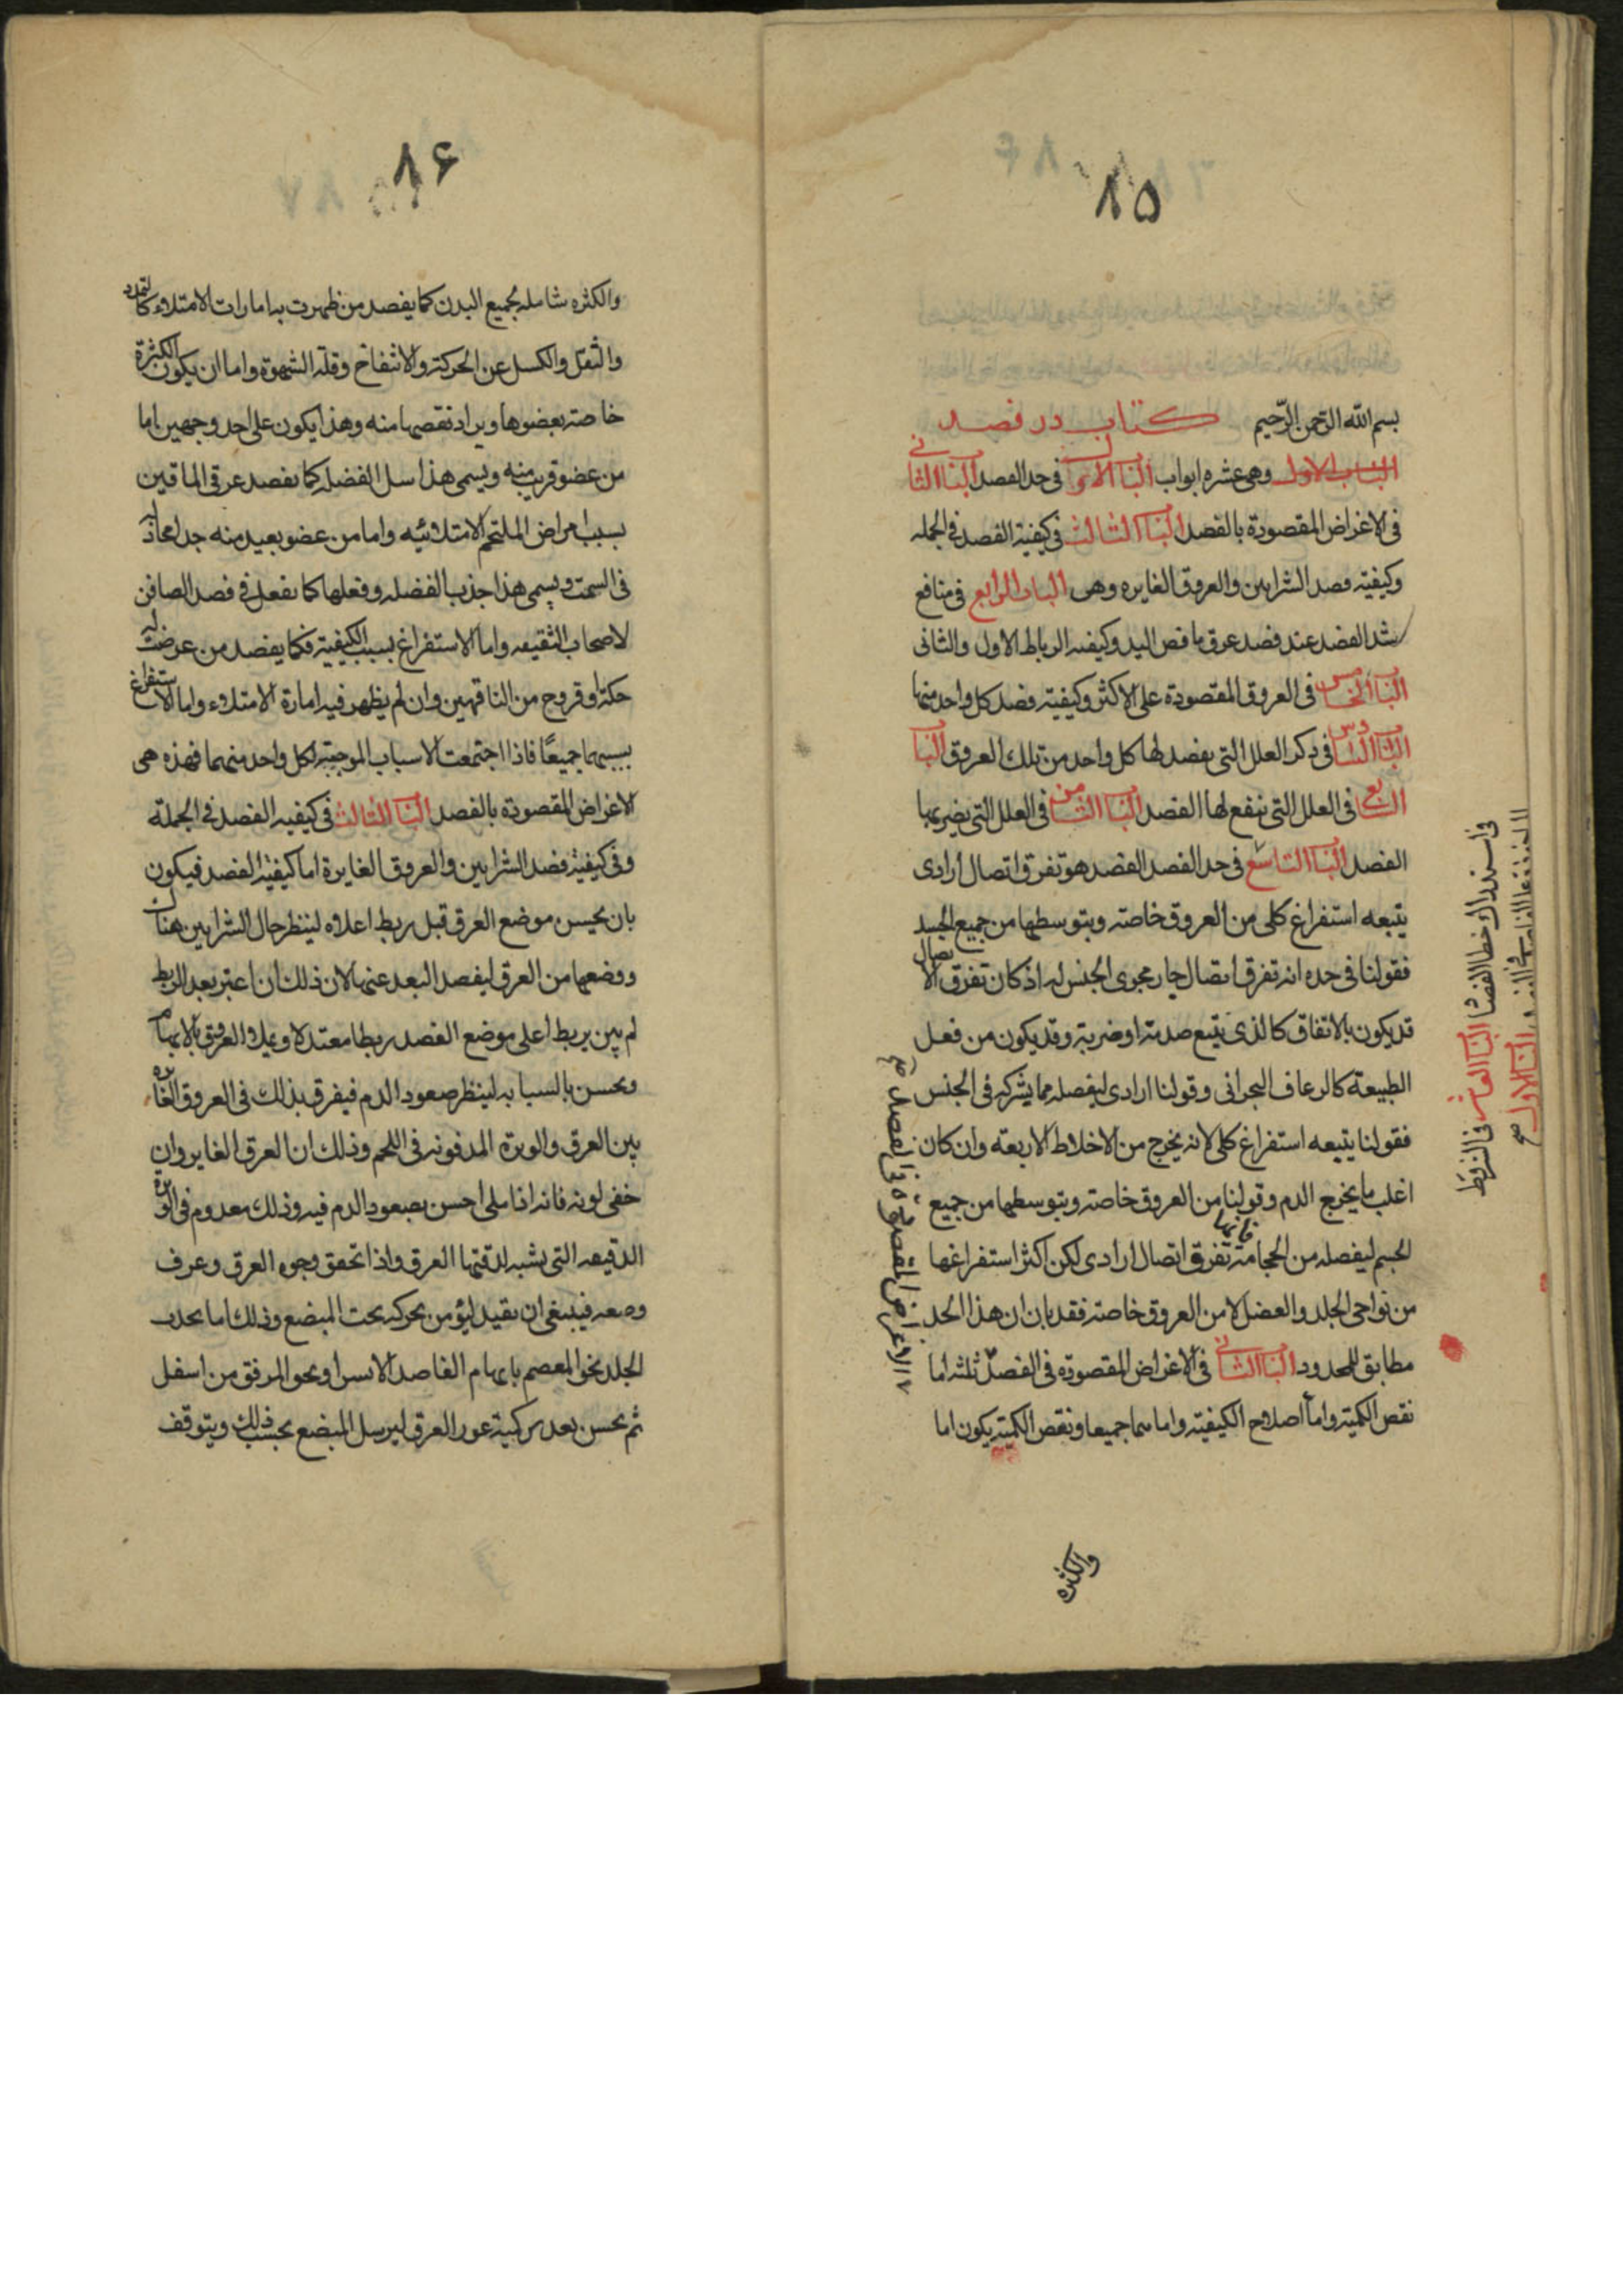 ۸۵
بسم الله الرحمن الرحيم كتاب در فصد
الباب الاول وهى عشره ابواب الباب الاول فى حد الفصد الباب الثانى
فى الاغراض المقصودة بالفصد الباب الثالث فى كيفية الفصد فى الجمله
وكيفيته فصد الشرايين والعروق الغايره وهى الباب الرابع فى منافع
شد العضد عند فصد عرق مافض اليد وكيفيه الرباط الاول والثانى
الباب الخامس فى العروق المقصودة على الاكثر وكيفيته فصد كل واحد منها
الباب السادس فى ذكر العلل التى يفصد لها كل واحد من تلك العروق الباب
السابع فى العلل التى ينفع لها الفصد الباب الثامن فى العلل التى يضر بها
الفصد الباب التاسع فى حد الفصد الفصد هو تفرق اتصال ارادى
يتبعه استفراغ كلى من العروق خاصته وبتوسطها من جميع الجسد
فقولنا فى حده انه تفرق اتصال جار مجرى الجنس له اذ كان تفرق الاتصال
قد يكون بالاتفاق كالذى يتبع صدمته او ضربته وقد يكون من فعل
الطبيعة كالرعاف البحرانى وقولنا ارادى ليفصله مما يشركه فى الجنس
فقولنا يتبعه استفراغ كلى لانه يخرج من الاخلاط الاربعة وان كان
اغلب ما يخرج الدم وقولنا من العروق خاصته وبتوسطها من جميع
الجسم ليفصله من الحجامة فانها تفرق اتصال ارادى لكن اكثر استفراغها
من نواحى الجلد والعضل لا من العروق خاصته فقد بان ان هذا الحد
مطابق للمحدود الباب الثانى فى الاغراض المقصوده فى الفصد ثلثه اما
نقص الكميته واما اصلاح الكيفيته واما بهما جميعا ونقص الكميته يكون اما
والكثره
فى استدراك خطا الفصاد الباب العاشر فى الشرط
الباب الاول صح
الاغراض المقصودة فى الفصد صح
۸۶
والكثره شامله لجميع البدن كما يفصد من ظهرت به امارات الامتلاء كالتمدد
والثقل والكسل عن الحركته والانتفاخ وقلة الشهوة واما ان يكون الكثرة
خاصته بعضوها ويراد نقصها منه وهذا يكون على احد وجهين اما
من عضو قريب منه ويسمى هذا سل الفضله كما يفصد عرقى الماقين
بسبب امراض الملتحم الامتلائيه واما من عضو بعيد منه جدا محاذ له
فى السمت ويسمى هذا جذب الفضله وفعلها كما يفعل فى فصد الصافن
لاصحاب الشقيقه واما الاستفراغ بسبب الكيفيته فكما يفصد من عرضت له
حكة او قروح من الناقهين وان لم يظهر فيه امارة الامتلاء واما الاستفراغ
بسببهما جميعًا فاذا اجتمعت الاسباب الموجبته لكل واحد منهما فهذه هى
الاغراض المقصودة بالفصد الباب الثالث فى كيفيه الفصد فى الجملة
وفى كيفيته فصد الشرايين والعروق الغايرة اما كيفيته الفصد فيكون
بان يحس موضع العرق قبل ربط اعلاه لينظر حال الشرايين هناك
ووضعها من العرق ليفصد البعد عنها لان ذلك ان اعتبر بعد الربط
لم يبن يربط اعلى موضع الفصد ربطا معتدلا ويملا العروق بالابهام
ويحس بالسبابه لينظر صعود الدم فيفرق بذلك فى العروق الغايره
بين العرق والوترة المدفونه فى اللحم وذلك ان العرق الغاير وان
خفى لونه فانه اذا ملى احس بصعود الدم فيه وذلك معدوم فى الوترة
الدقيقه التى يشبه لدقتها العرق واذا تحقق وجود العرق وعرف
وضعه فينبغى ان يقيد ليؤمن تحركه تحت المبضع وذلك اما بجذب
الجلد نحو المعصم بابهام الفاصد الايسر او نحو المرفق من اسفل
ثم يحس بعد غور العرق ليرسل المبضع بحسب ذلك ويتوقف